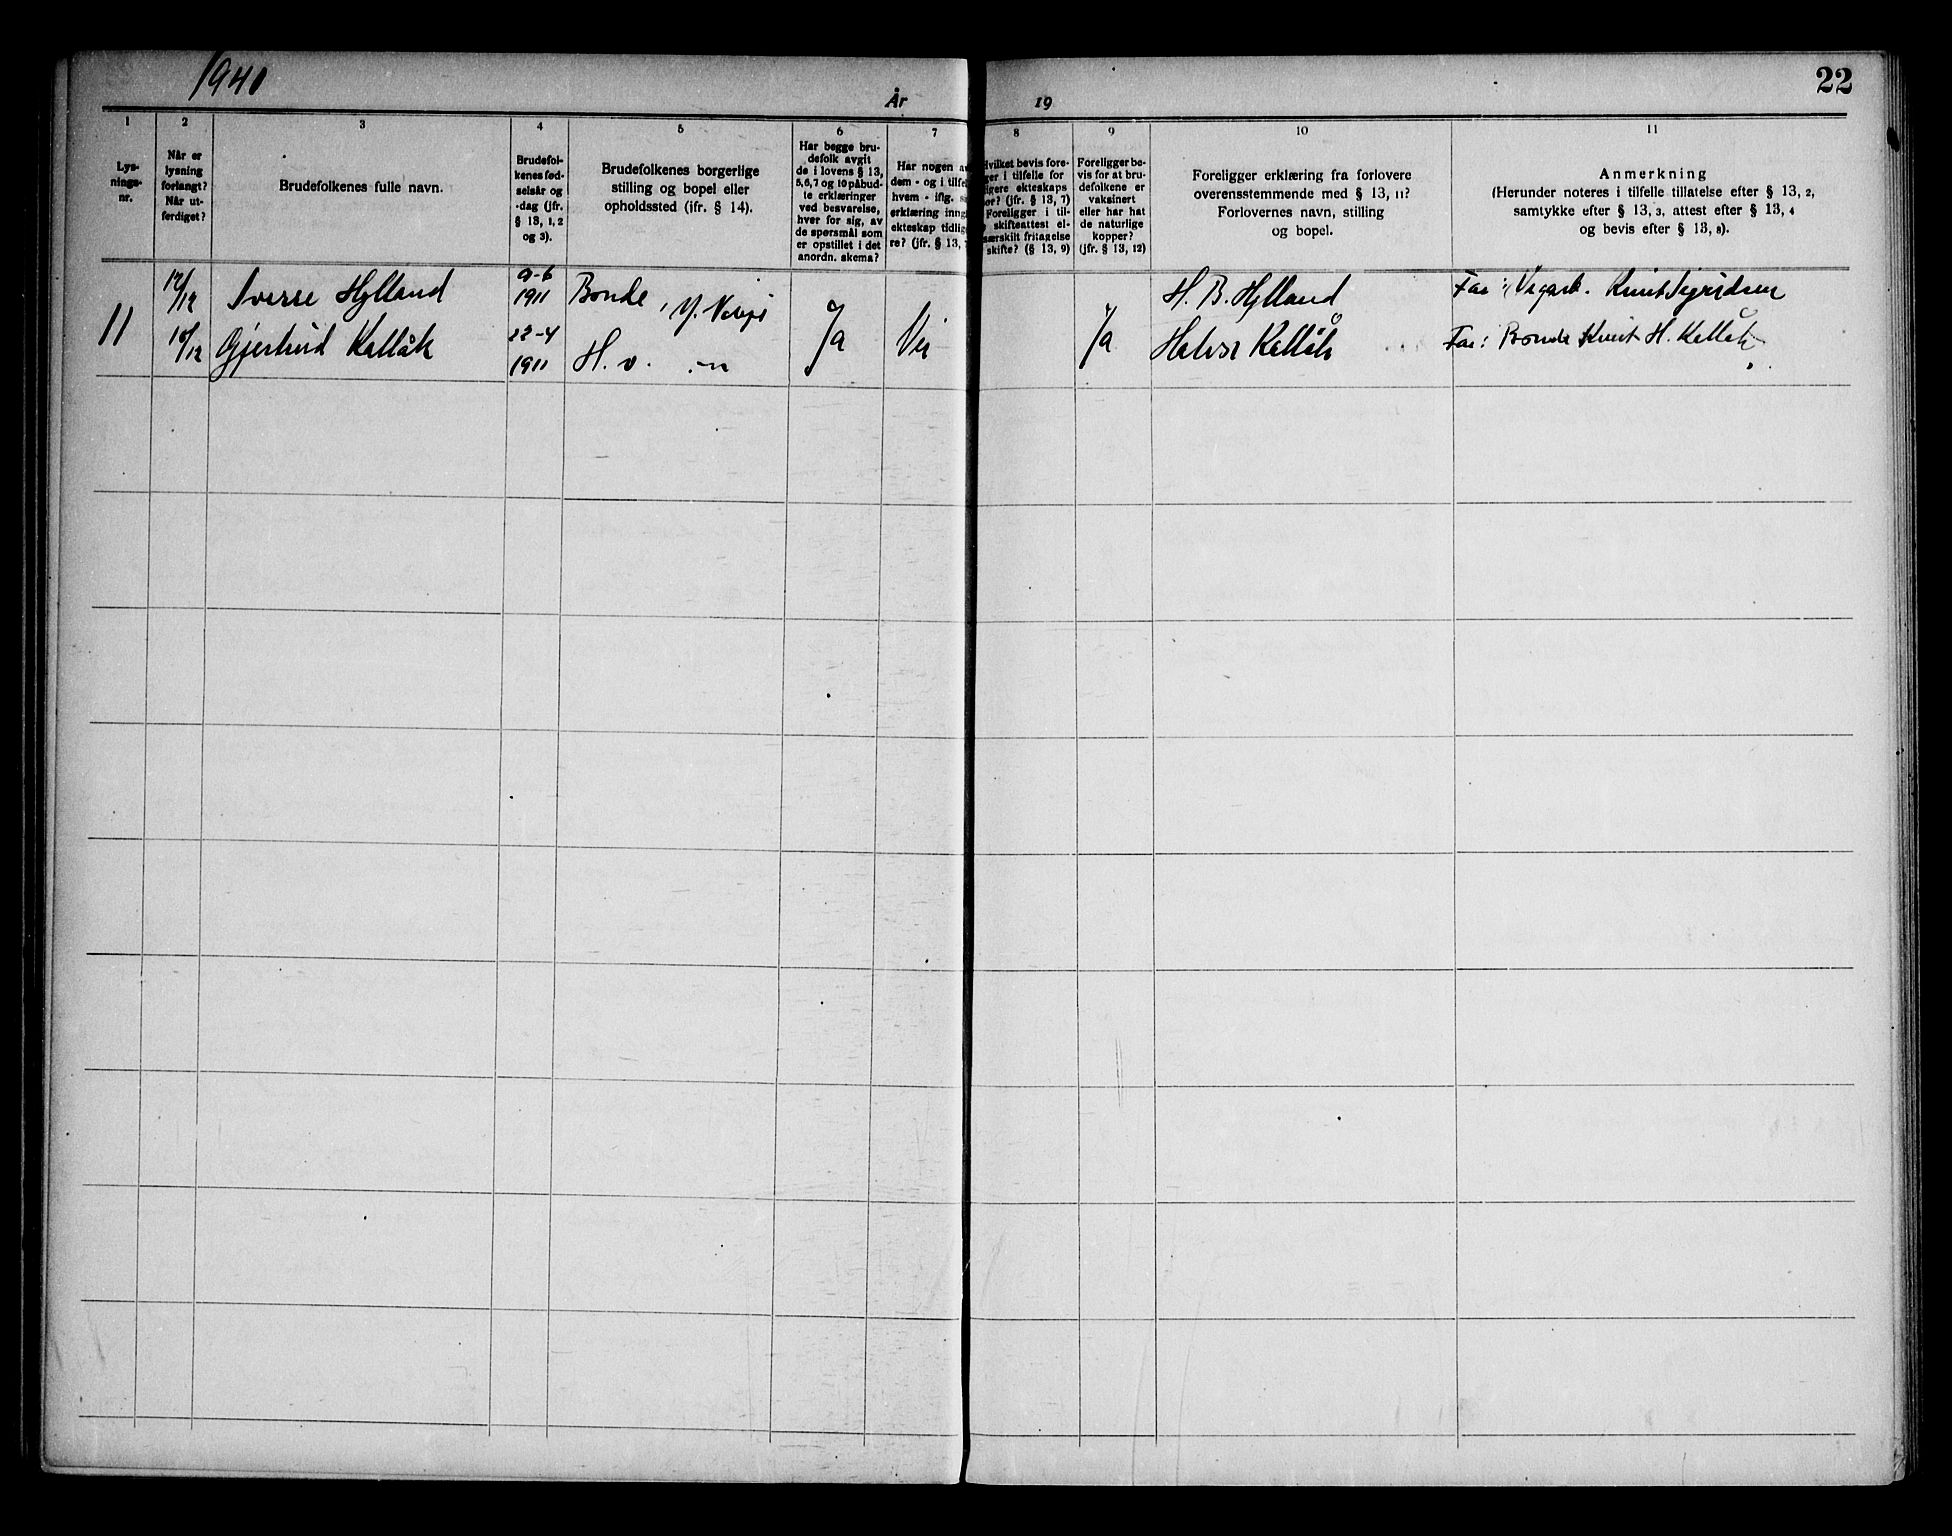 1940
År
19
22
1
2
3
4
5
6
7
8
9
10
11
Lys-
nings-
nr.
Når er
lysning
forlangt?
Når ut-
ferdiget?
Brudefolkenes fulle navn.
Brudefol-
kenes fød-
selsår og
-dag (jfr.
§ 13, 1, 2
og 3).
Brudefolkenes borgerlige
stilling og bopel eller
opholdssted (jfr. § 14).
Har begge bru-
defolk avgit
de i lovens § 13,
5, 6, 7 og 10 påbud-
te erklæringer
ved besvarelse,
hver for sig, av
de spørsmål som
er opstillet i det
anordn. skema?
Har nogen a
dem - og i tilfe
hvem - iflg.
erklæring inng
ekteskap tidlig
re? (jfr. § 13,
Hvilket bevis fore-
ger i tilfelle for
ligere ekteskaps
or? (jfr. § 13, 7)
Foreligger i til-
skifteattest el-
særskilt fritagelse
skifte? (§ 13, 9)
Foreligger be-
vis for at bru-
defolkene er
vaksinert
eller har hat
de naturlige
kopper?
(jfr. § 13, 12)
Foreligger erklæring fra forlovere
overensstemmende med § 13, 11?
Forlovernes navn, stilling
og bopel.
Anmerkning
(Herunder noteres i tilfelle tillatelse efter § 13, 2,
samtykke efter § 13, 3, attest efter § 13, 4
og bevis efter § 13, 8).
11
12/12 Sverre Hylland 9-6 1911 Bonde, Ja Nei Ja H. B. Hylland Far: Knut Sigurdsen
18/12 Gjertrud Kallåk 22-4 1911 H. v. -"- Halvor Kallåk Far: Bonde Knut H. Kallåk